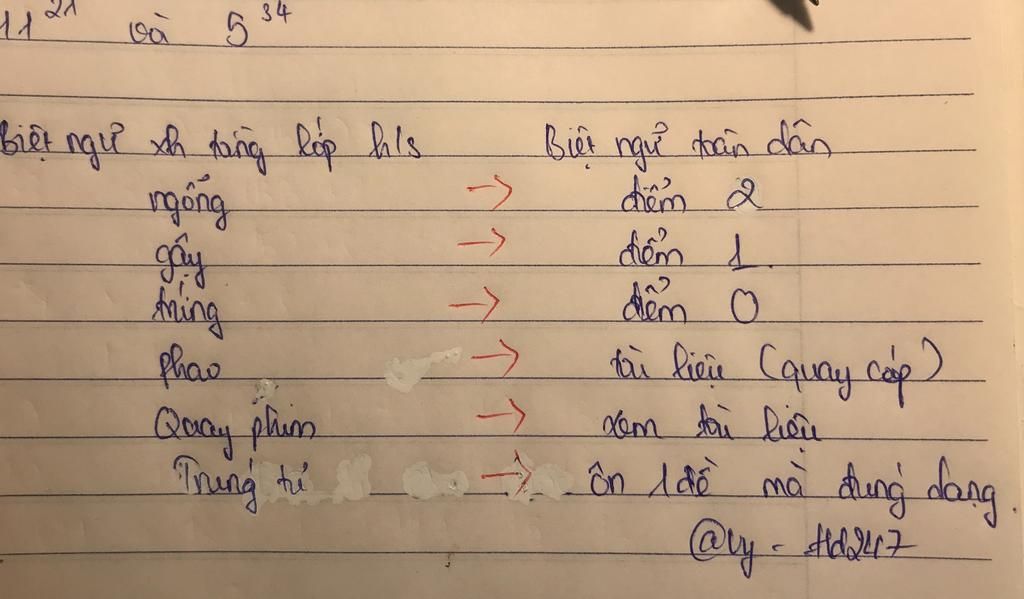 11²¹ và 5³⁴
Biệt ngữ xh tầng lớp h/s Biệt ngữ toàn dân
ngống → điểm 2
gậy → điểm 1.
trứng → điểm 0
phao → tài liệu (quay cóp)
Quay phim → xem tài liệu
Trúng tủ → ôn 1 đề mà đúng dạng.
@Vy - Hd247